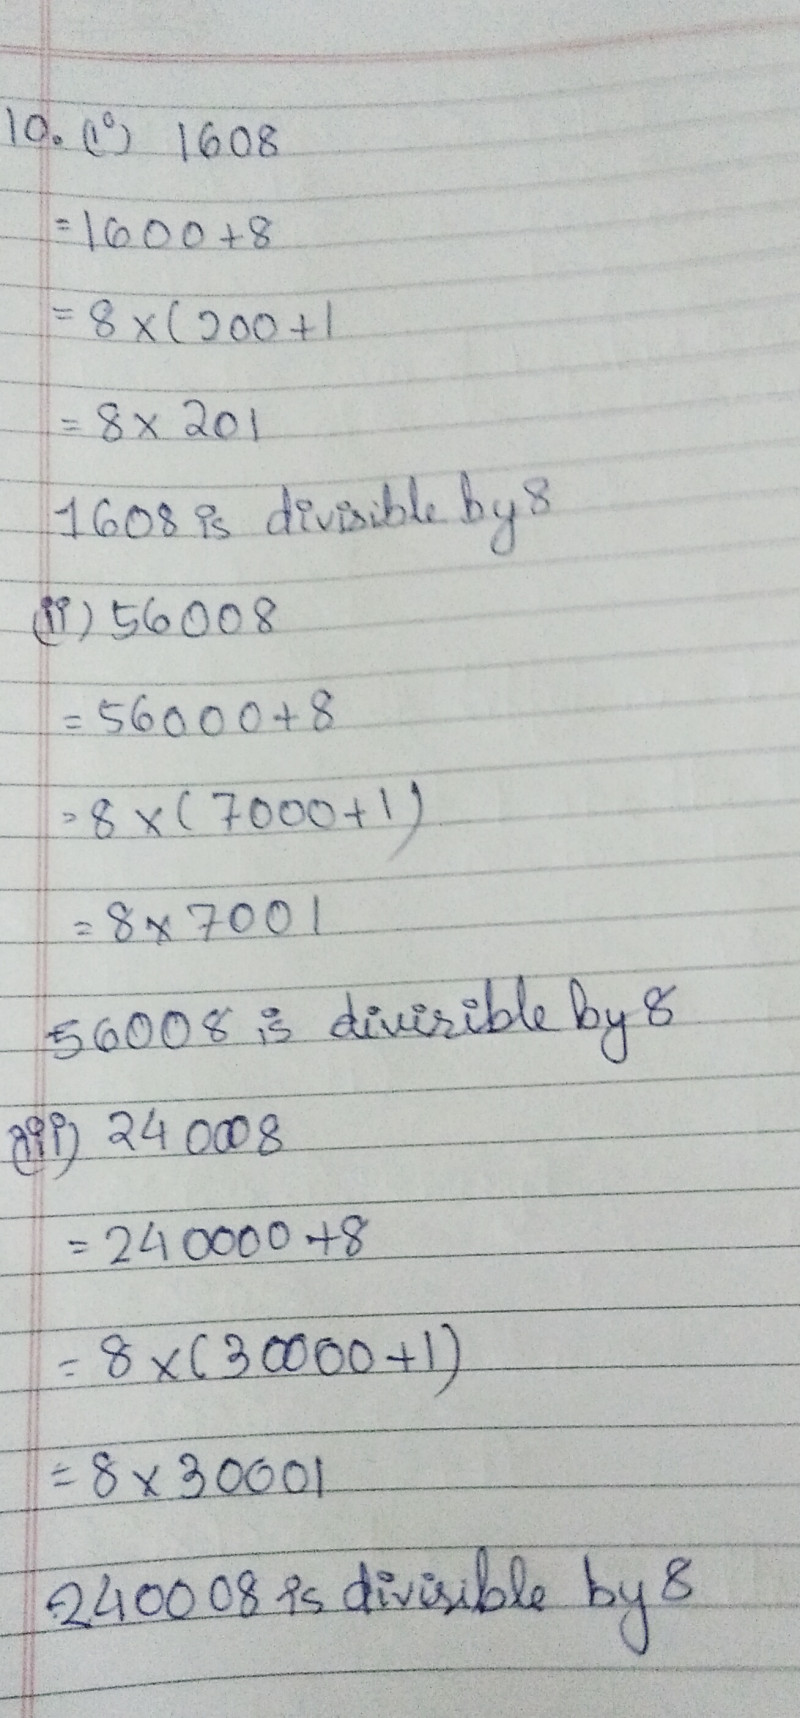 10. (i) 1608
=1600+8
=8×(200+1
=8×201
1608 is divisible by 8
(ii) 56008
=56000+8
=8×(7000+1)
=8×7001
56008 is divisible by 8
(iii) 240008
=240000+8
=8×(30000+1)
=8×30001
240008 is divisible by 8